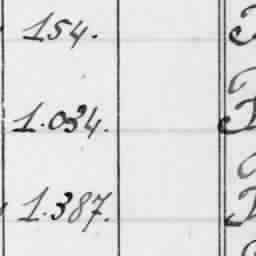 154.
1.034.
1.387.